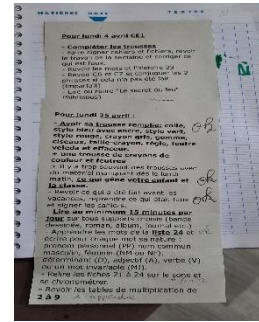 MATIERES
TEXTES
Pour lundi 4 avril CE1
- Compléter les trousses
- Faire signer cahiers et fichiers, revoir
le travail de la semaine et corriger ce
qui est faux.
- Revoir les mots et
- Revoir C6 et C7 et conjuguer les 2
phrases si cela n'a pas été fait
(imparfait)
- Lire ou relire "Le secret du
Pour lundi 25 avril :
- Avoir sa trousse remplie: colle,
stylo bleu avec encre, stylo vert,
stylo rouge, crayon gris, gomme,
ciseaux, taille-crayon, règle, feutre
velleda et effaceur.
+ une trousse de crayons de
couleur et feutres
Il y a trop souvent des trousses avec
du matériel manquant dès le lundi
matin, ce qui gêne votre enfant et
la classe.
- Revoir ce qui a été fait avant les
vacances, reprendre ce qui était faux
et signer les cahiers.
Lire au minimum 15 minutes par
jour sur tous supports choisis (bande
dessinée, roman, album, journal etc.)
- Apprendre les mots de la liste 24 et
écrire pour chaque mot sa nature :
pronom personnel (PP) nom commun
masculin, féminin (NM ou NF),
déterminant (D), adjectif (A), verbe (V)
ou un mot invariable (MI).
- Relire les fiches 21 à 24 sur le sons et
se chronométrer.
- Revoir les tables de multiplication de
2 à 9